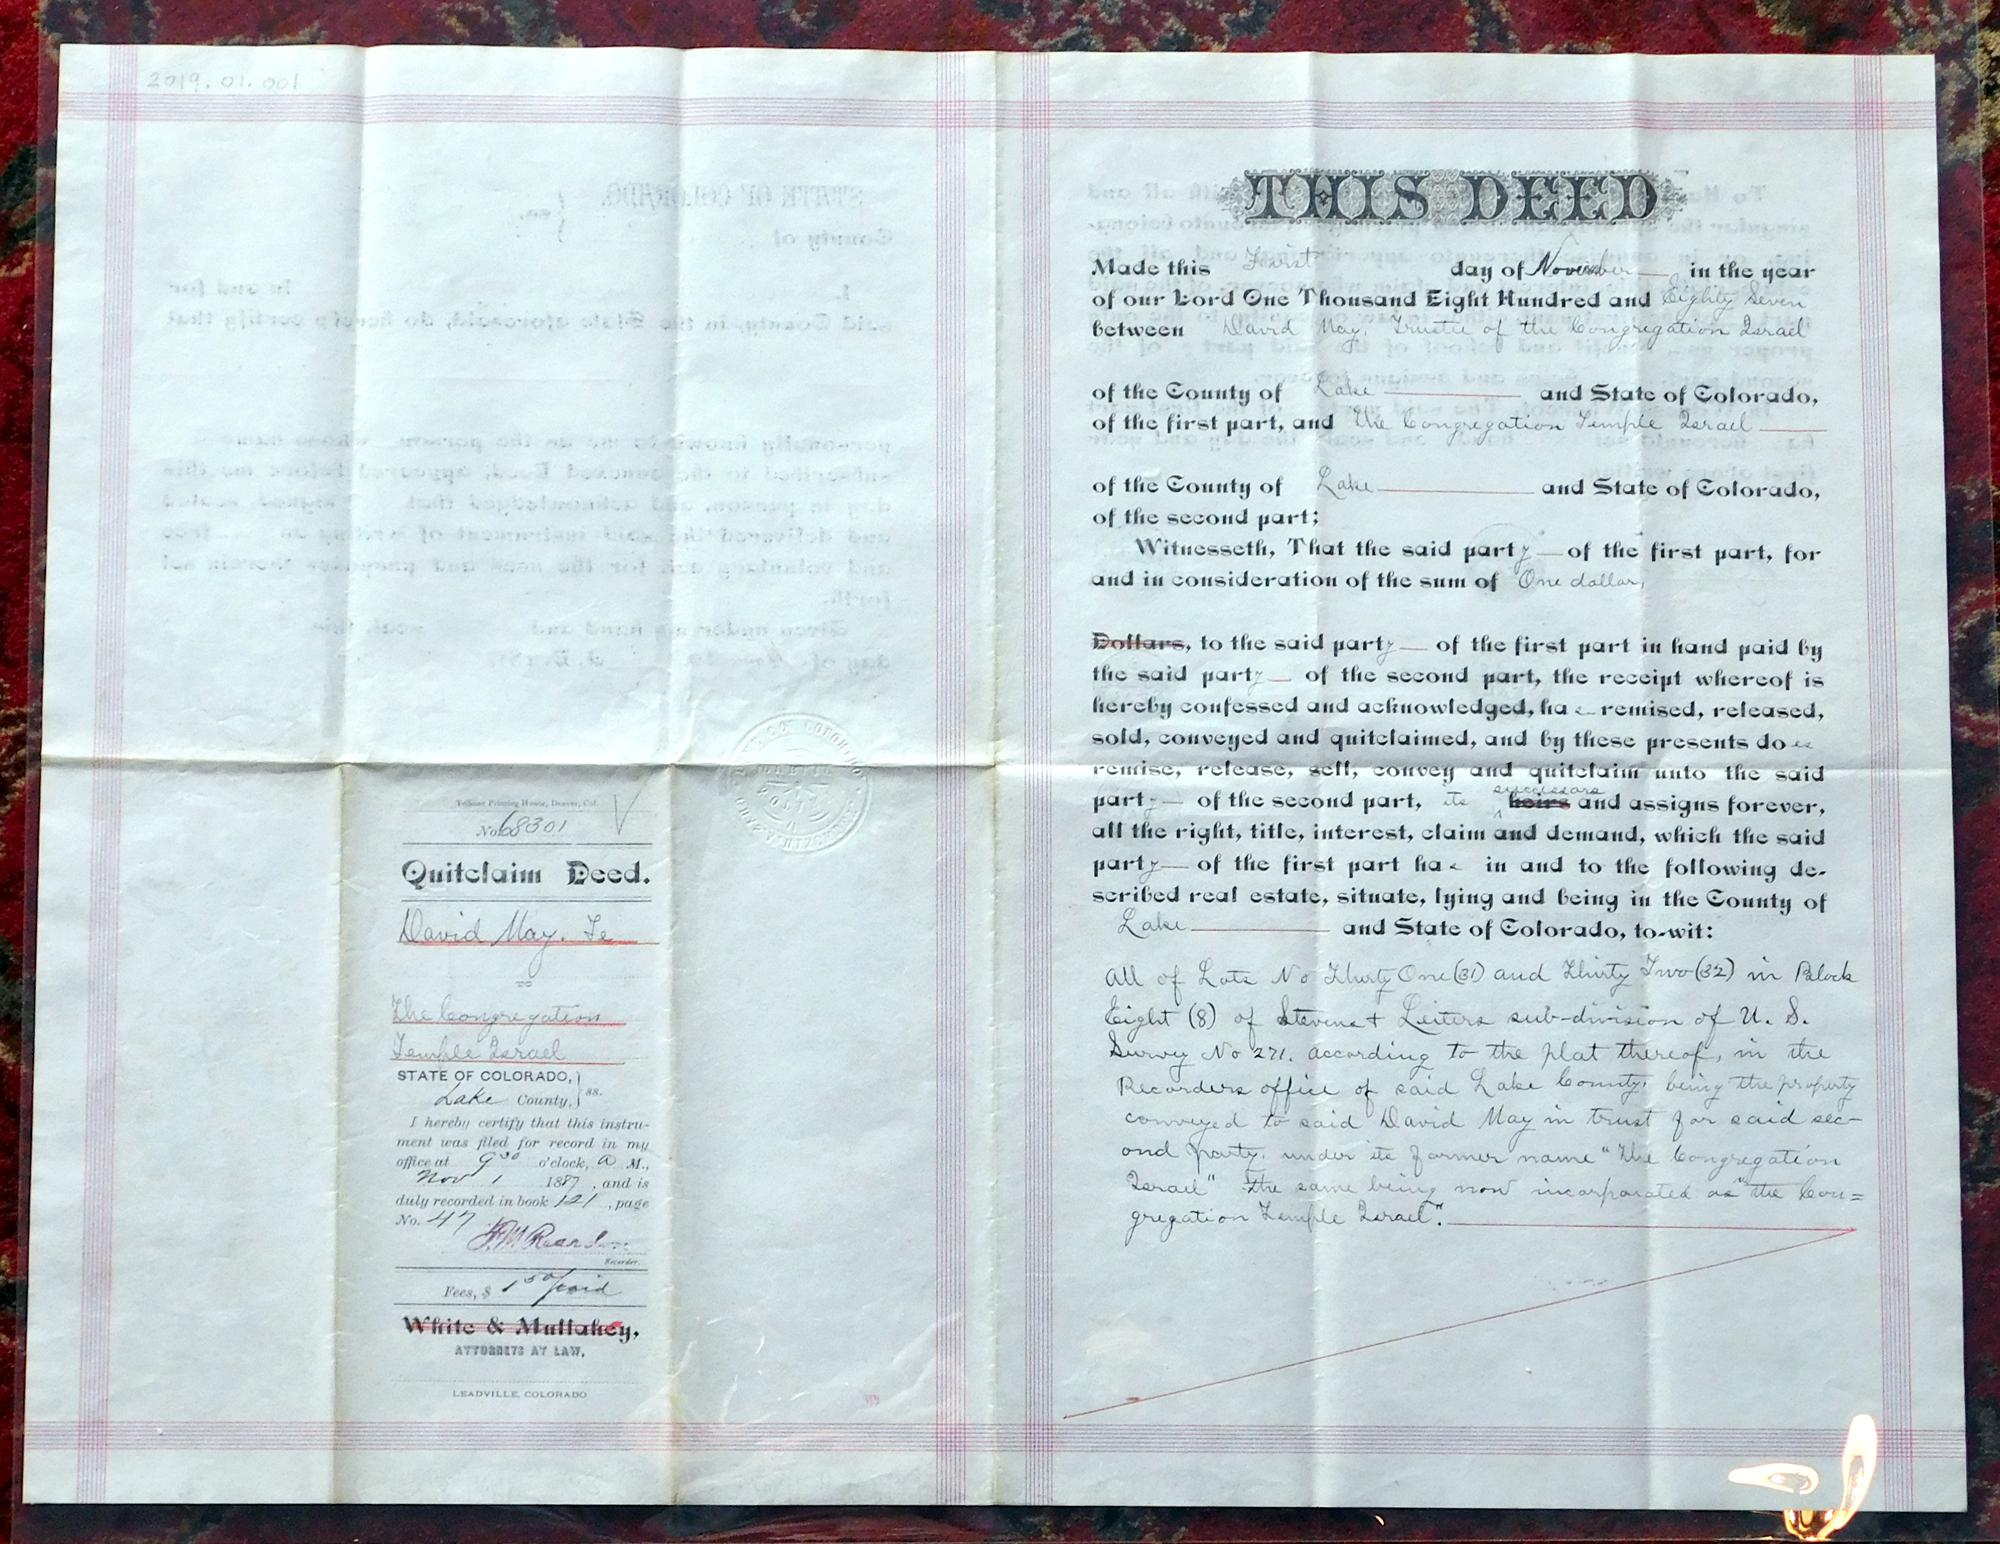 2019.01.001
Tribune Printing House, Denver, Col.
No. 68301
Quitclaim Deed.
David May. Te
TO
The Congregation
Temple Israel
STATE OF COLORADO, } ss.
Lake County,
I hereby certify that this instru-
ment was filed for record in my
office at 9 30 o'clock, A M.,
Nov 1 1887, and is
duly recorded in book 121, page
No. 47
Recorder.
Fees, $ 1 50/paid
White & Mullahey,
ATTORNEYS AT LAW,
LEADVILLE, COLORADO
THIS DEED
Made this First day of November in the year
of our Lord One Thousand Eight Hundred and Eighty Seven
between David May, Trustee of the Congregation Israel
of the County of Lake and State of Colorado,
of the first part, and The Congregation Temple Israel
of the County of Lake and State of Colorado,
of the second part;
Witnesseth, That the said party of the first part, for
and in consideration of the sum of One dollar,
Dollars, to the said party of the first part in hand paid by
the said party of the second part, the receipt whereof is
hereby confessed and acknowledged, ha s remised, released,
sold, conveyed and quitclaimed, and by these presents does
remise, release, sell, convey and quitclaim unto the said
successors
party of the second part, its heirs and assigns forever,
all the right, title, interest, claim and demand, which the said
party of the first part has in and to the following de-
scribed real estate, situate, lying and being in the County of
Lake and State of Colorado, to-wit:
All of Lots No Thirty One (31) and Thirty Two (32) in Block
Eight (8) of Stevens & Leiters sub-division of U. S.
Survey No 271. according to the plat thereof, in the
Recorders office of said Lake County, being the property
conveyed to said David May in trust for said sec-
ond party. under its former name "The Congregation
Israel" the same being now incorporated as "the Con=
gregation Temple Israel".